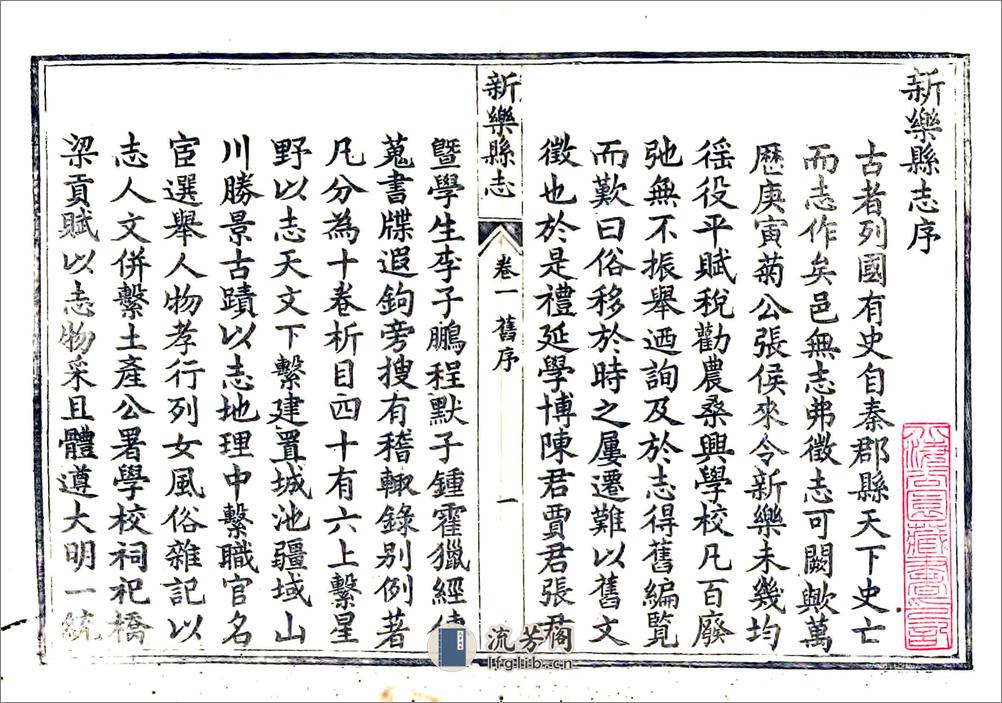 新樂縣志序
古者列國有史自秦郡縣天下史亡
而志作矣邑無志弗徵志可闕歟萬
歷庚寅菊公張侯來令新樂未幾均
徭役平賦稅勸農桑興學校凡百廢
弛無不振舉迺詢及於志得舊編覽
而歎曰俗移於時之屢遷難以舊文
徵也於是禮延學博陳君賈君張君
新樂縣志
卷一 舊序
一
暨學生李子鵬程默子鍾霍獵經傳
蒐書牒遐鉤旁搜有稽輙錄別例著
凡分為十卷析目四十有六上繫星
野以志天文下繫建置城池疆域山
川勝景古蹟以志地理中繫職官名
宦選舉人物孝行列女風俗雜記以
志人文併繫土產公署學校祠祀橋
梁貢賦以志物采且體遵大明一統
流芳閣
lfglib.cn